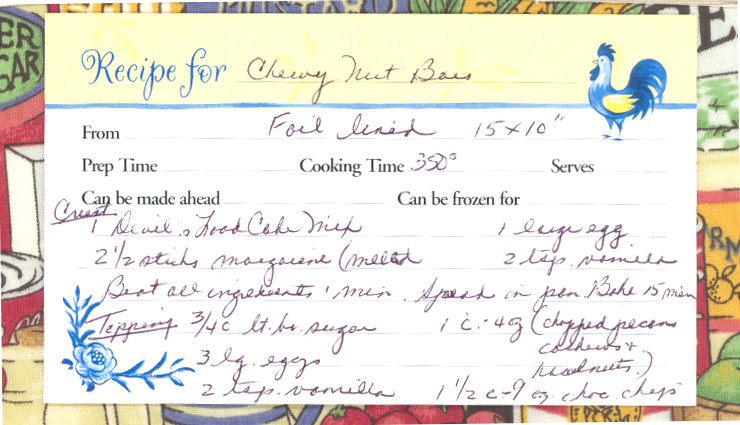 Recipe for Chewy Nut Bars
From Foil lined 15x10"
Prep Time Cooking Time 350° Serves
Can be made ahead Can be frozen for
Crust
1 Devil's Food Cake Mix 1 large egg
2 1/2 sticks margarine (melted 2 tsp. vanilla
Beat all ingredients 1 min. Spread in pan. Bake 15 min
Topping 3/4 c lt. br. sugar 1 c. - 4 oz (chopped pecans
cashews +
3 lg. eggs hazelnuts.)
2 tsp. vanilla 1 1/2 c - 9 oz. choc. chips